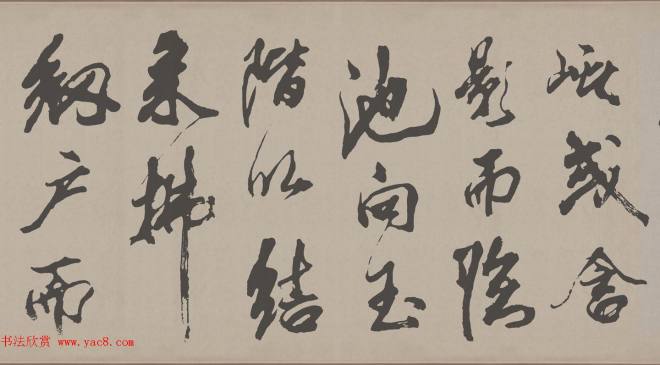 或含
影而臨
池向玉
階以結
采拂
網户而
书法欣赏 www.yac8.com